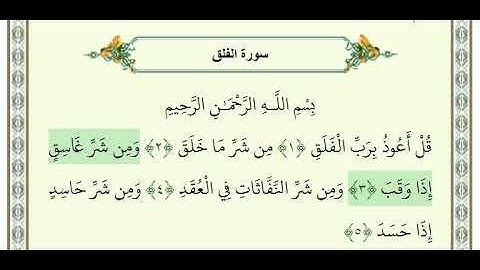 سورة الفلق
بِسْمِ اللَّـهِ الرَّحْمَـٰنِ الرَّحِيمِ
قُلْ أَعُوذُ بِرَبِّ الْفَلَقِ ﴿١﴾ مِن شَرِّ مَا خَلَقَ ﴿٢﴾ وَمِن شَرِّ غَاسِقٍ
إِذَا وَقَبَ ﴿٣﴾ وَمِن شَرِّ النَّفَّاثَاتِ فِي الْعُقَدِ ﴿٤﴾ وَمِن شَرِّ حَاسِدٍ
إِذَا حَسَدَ ﴿٥﴾